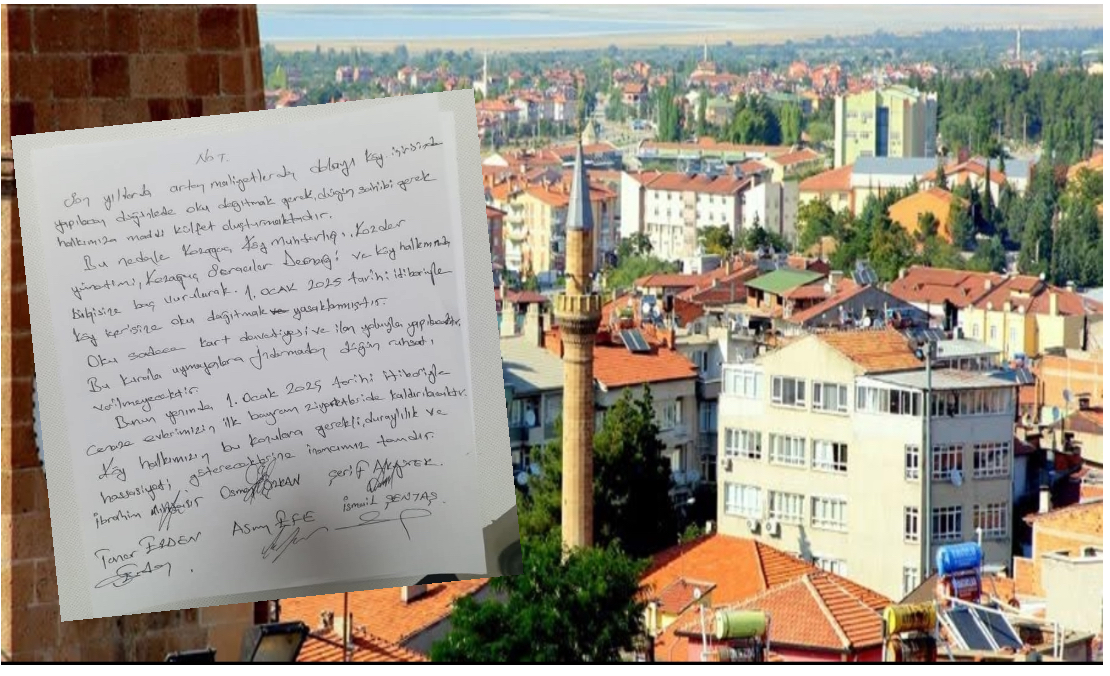 NOT.
Son yıllarda artan maliyetlerden dolayı köy içerisinde
yapılacak düğünlede oku dağıtmak gerek, düğün sahibi gerek
halkımıza maddi külfet oluşturmaktadır.
Bu nedenle Kozağaç Köy Muhtarlığı, Kozder
yönetimi, Kozağaç Derneği ve köy halkımızın
bilgisine baş vurularak. 1. OCAK 2025 tarihi itibariyle
köy içerisine oku dağıtmak yasaklanmıştır.
Oku sadece kart davetiyesi ve ilan yoluyla yapılacaktır.
Bu kurala uymayanlara düğün ruhsatı
verilmeyecektir.
Bunun yanında 1. Ocak 2025 tarihi itibariyle
cenaze evlerimizin ilk bayram ziyaretleride kaldırılacaktır.
Köy halkımızın bu konulara gerekli, duyarlılık ve
hassasiyeti göstereceklerine inancımız tamdır.
İbrahim Osman ÖZKAN Şerif
Taner ERDEN Asım EFE İsmail ŞENTAŞ